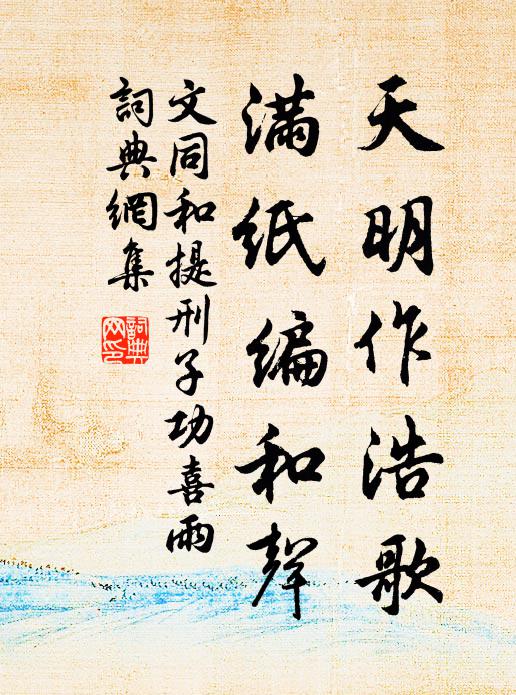 天明作浩歌
满紙编和聲
文同和提刑子功喜雨
詞典網集
詞典网印